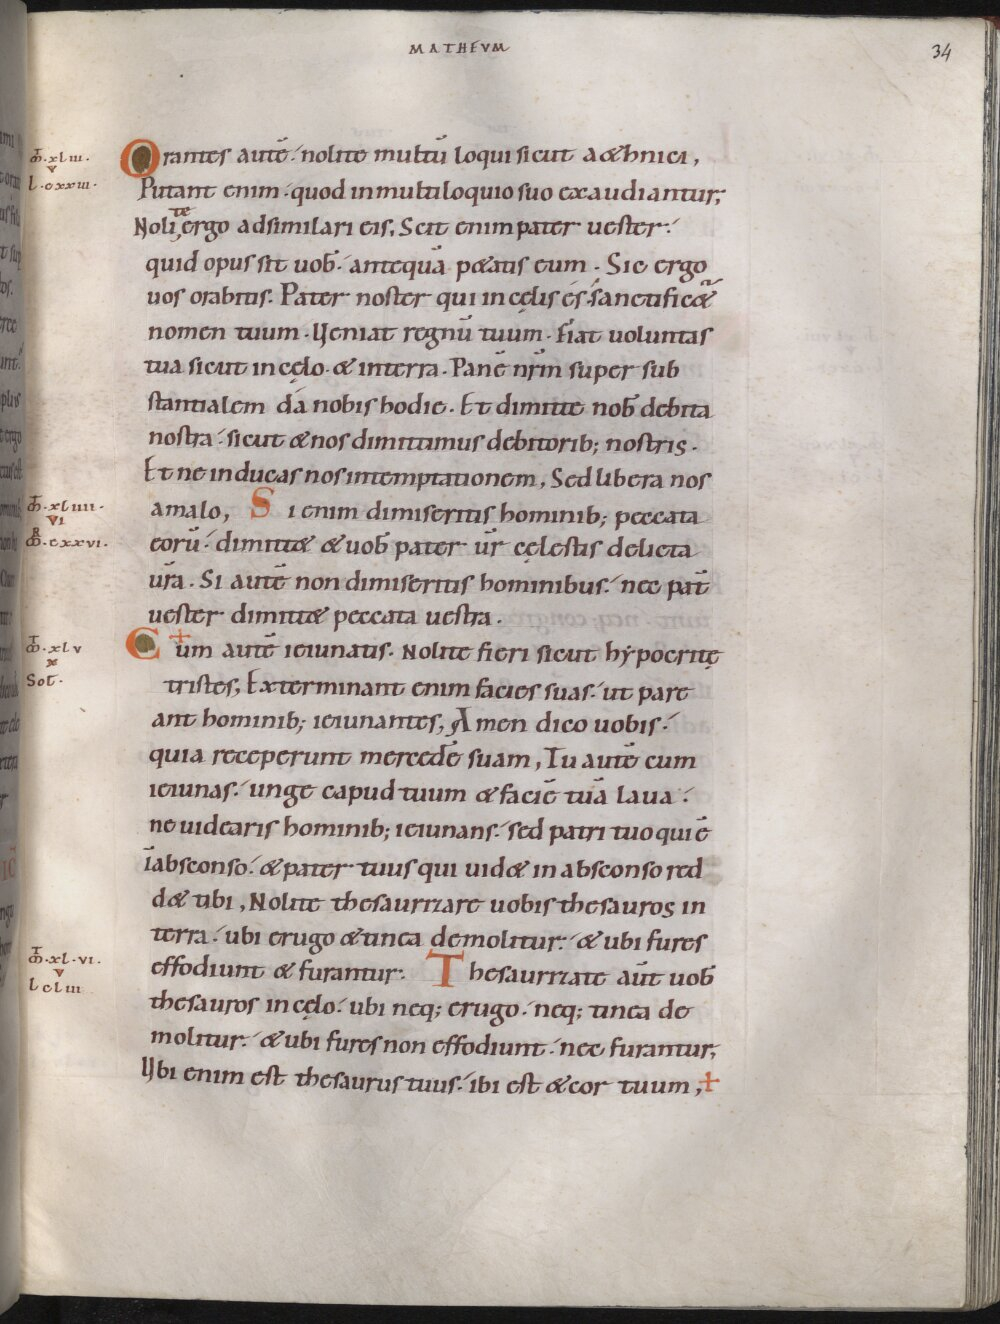 MATHEVM
34
Orantes autē· nolite multū loqui sicut a&hnici,
m̄·xliii·
v
l·cxxiii·
Putant enim· quod inmultiloquio suo exaudiantur;
Nolite ergo adsimilari eis; Scit enim pater uester·
quid opus sit uob̄· antequā p&atis eum· Sic ergo
uos orabitis· Pater noster qui incęlis ēs· sanctific&ur
nomen tuum· Veniat regnū tuum· Fiat uoluntas
tua sicut incęlo· & interra· Panē nr̄m super sub
stantialem dá nobis hodie· Et dimitte nob̄ debita
nostra· sicut & nos dimittimus debitorib; nostris·
Et ne inducas nos intemptationem, Sed libera nos
m̄·xliiii·
vi
m̄r·cxxvi·
amalo, Si enim dimiseritis hominib; peccata
eorū· dimitt& & uob̄ pater ur̄ cęlestis delicta
ur̄a· Si autē non dimiseritis hominibus· nec pat̄
uester dimitt& peccata uestra·
m̄·xlv
x
Sol̄·
Cum autē ieiunatis· Nolite fieri sicut hẏpocritę
tristes; Exterminant enim facies suas· ut pare
ant hominib; ieiunantes; Amen dico uobis·
quia receperunt mercedē suam, Tu autē cum
ieiunas· unge capud tuum & faciē tuā laua·
ne uidearis hominib; ieiunans· sed patri tuo qui ē
īabsconso· & pater tuus qui uid& in absconso red
d& tibi, Nolite thesaurizare uobis thesauros in
terra· ubi erugo & tinea demolitur· & ubi fures
m̄·xl·vi·
v
l cliii
effodiunt & furantur· Thesaurizate aūt uob̄
thesauros in cęlo· ubi neq; erugo· neq; tinea de
molitur· & ubi fures non effodiunt· nec furantur;
Vbi enim est thesaurus tuus· ibi est & cor tuum,+